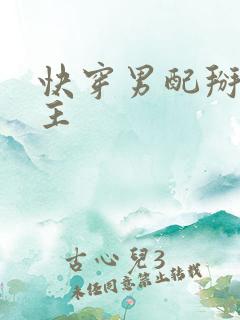 快穿男配掰
主
古心兒3
未经同意禁止转载